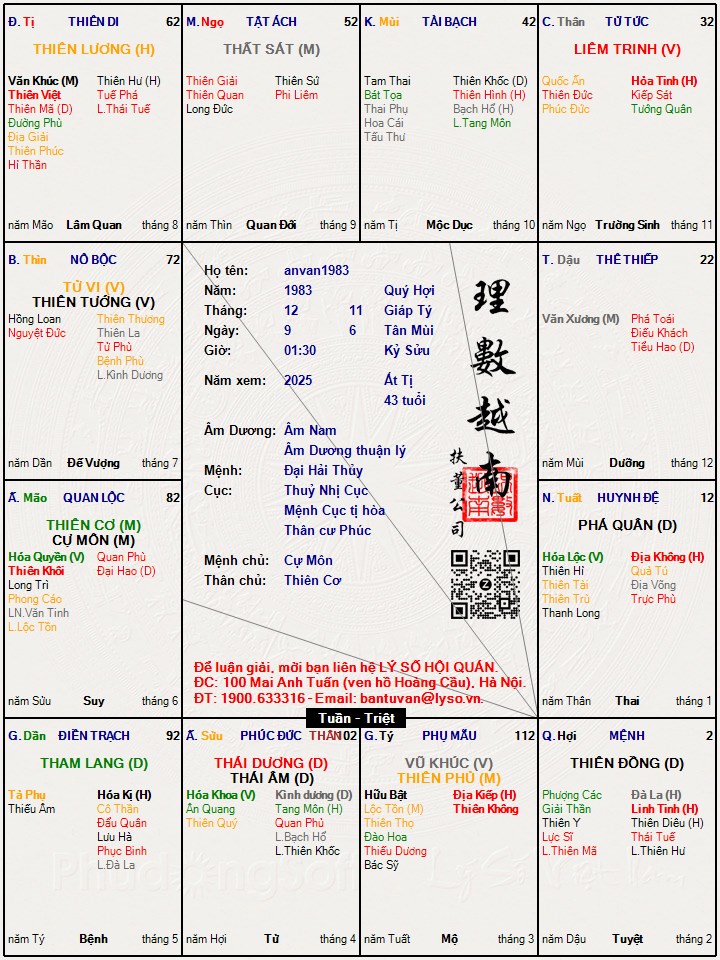 Đ. Tị THIÊN DI 62
THIÊN LƯƠNG (H)
Văn Khúc (M) Thiên Hư (H)
Thiên Việt Tuế Phá
Thiên Mã (D) L.Thái Tuế
Đường Phù
Địa Giải
Thiên Phúc
Hỉ Thần
năm Mão Lâm Quan tháng 8
M. Ngọ TẬT ÁCH 52
THẤT SÁT (M)
Thiên Giải Thiên Sứ
Thiên Quan Phi Liêm
Long Đức
năm Thìn Quan Đới tháng 9
K. Mùi TÀI BẠCH 42
Tam Thai Thiên Khốc (D)
Bát Tọa Thiên Hình (H)
Thai Phụ Bạch Hổ (H)
Hoa Cái L.Tang Môn
Tấu Thư
năm Tị Mộc Dục tháng 10
C. Thân TỬ TỨC 32
LIÊM TRINH (V)
Quốc Ấn Hỏa Tinh (H)
Thiên Đức Kiếp Sát
Phúc Đức Tướng Quân
năm Ngọ Trường Sinh tháng 11
B. Thìn NÔ BỘC 72
TỬ VI (V)
THIÊN TƯỚNG (V)
Hồng Loan Thiên Thương
Nguyệt Đức Thiên La
Tử Phù
Bệnh Phù
L.Kình Dương
năm Dần Đế Vượng tháng 7
Họ tên: anvan1983
Năm: 1983 Quý Hợi
Tháng: 12 11 Giáp Tý
Ngày: 9 6 Tân Mùi
Giờ: 01:30 Kỷ Sửu
Năm xem: 2025 Ất Tị
43 tuổi
Âm Dương: Âm Nam
Âm Dương thuận lý
Mệnh: Đại Hải Thủy
Cục: Thuỷ Nhị Cục
Mệnh Cục tị hòa
Thân cư Phúc
Mệnh chủ: Cự Môn
Thân chủ: Thiên Cơ
理數越南
扶董公司
Để luận giải, mời bạn liên hệ LÝ SỐ HỘI QUÁN.
ĐC: 100 Mai Anh Tuấn (ven hồ Hoàng Cầu), Hà Nội.
ĐT: 1900.633316 - Email: bantuvan@lyso.vn.
Tuần - Triệt
T. Dậu THÊ THIẾP 22
Văn Xương (M) Phá Toái
Điếu Khách
Tiểu Hao (D)
năm Mùi Dưỡng tháng 12
Ấ. Mão QUAN LỘC 82
THIÊN CƠ (M)
CỰ MÔN (M)
Hóa Quyền (V) Quan Phù
Thiên Khôi Đại Hao (D)
Long Trì
Phong Cáo
LN.Văn Tinh
L.Lộc Tồn
năm Sửu Suy tháng 6
N. Tuất HUYNH ĐỆ 12
PHÁ QUÂN (D)
Hóa Lộc (V) Địa Không (H)
Thiên Hỉ Quả Tú
Thiên Tài Địa Võng
Thiên Trù Trực Phù
Thanh Long
năm Thân Thai tháng 1
G. Dần ĐIỀN TRẠCH 92
THAM LANG (D)
Tả Phụ Hóa Kị (H)
Thiếu Âm Cô Thần
Đẩu Quân
Lưu Hà
Phục Binh
L.Đà La
năm Tý Bệnh tháng 5
Ấ. Sửu PHÚC ĐỨC THÂN 102
THÁI DƯƠNG (D)
THÁI ÂM (D)
Hóa Khoa (V) Kình dương (D)
Ân Quang Tang Môn (H)
Thiên Quý Quan Phủ
L.Bạch Hổ
L.Thiên Khốc
năm Hợi Tử tháng 4
G. Tý PHỤ MẪU 112
VŨ KHÚC (V)
THIÊN PHỦ (M)
Hữu Bật Địa Kiếp (H)
Lộc Tồn (M) Thiên Không
Thiên Thọ
Đào Hoa
Thiếu Dương
Bác Sỹ
năm Tuất Mộ tháng 3
Q. Hợi MỆNH 2
THIÊN ĐỒNG (D)
Phượng Các Đà La (H)
Giải Thần Linh Tinh (H)
Thiên Y Thiên Diêu (H)
Lực Sĩ Thái Tuế
L.Thiên Mã L.Thiên Hư
năm Dậu Tuyệt tháng 2